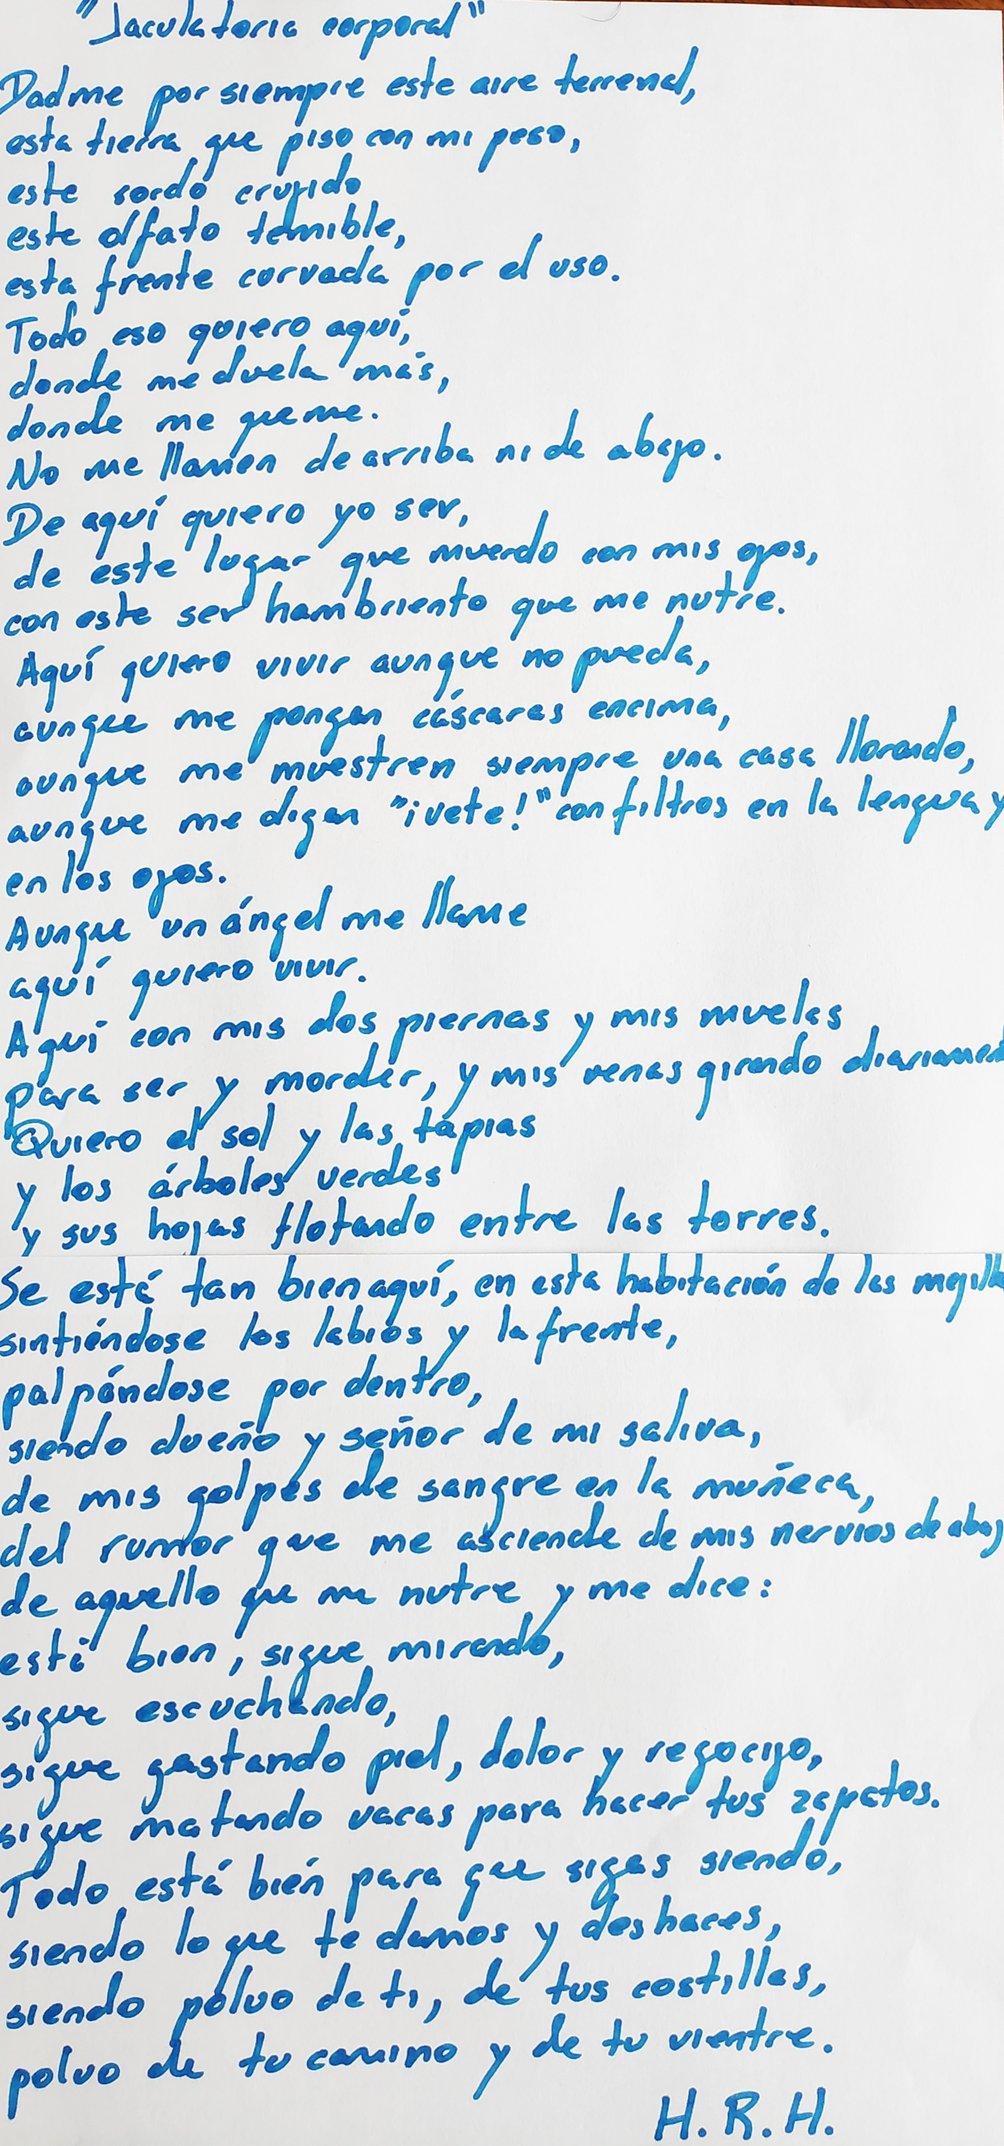 "Jaculatoria corporal"
Dadme por siempre este aire terrenal,
esta tierra que piso con mi peso,
este sordo crujido
este olfato temible,
esta frente curvada por el uso.
Todo eso quiero aquí,
donde me duela más,
donde me queme.
No me llamen de arriba ni de abajo.
De aquí quiero yo ser,
de este lugar que muerdo con mis ojos,
con este ser hambriento que me nutre.
Aquí quiero vivir aunque no pueda,
aunque me pongan cáscaras encima,
aunque me muestren siempre una casa llorando,
aunque me digan "¡vete!" con filtros en la lengua y
en los ojos.
Aunque un ángel me llame
aquí quiero vivir.
Aquí con mis dos piernas y mis muelas
para ser y morder, y mis venas girando diariamen
Quiero el sol y las tapias
y los árboles verdes
y sus hojas flotando entre las torres.
Se está tan bien aquí, en esta habitación de las mejilla
sintiéndose los labios y la frente,
palpándose por dentro,
siendo dueño y señor de mi saliva,
de mis golpes de sangre en la muñeca,
del rumor que me asciende de mis nervios de abaj
de aquello que me nutre y me dice:
está bien, sigue mirando,
sigue escuchando,
sigue gastando piel, dolor y regocijo,
sigue matando vacas para hacer tus zapatos.
Todo está bién para que sigas siendo,
siendo lo que te damos y deshaces,
siendo polvo de ti, de tus costillas,
polvo de tu camino y de tu vientre.
H.R.H.